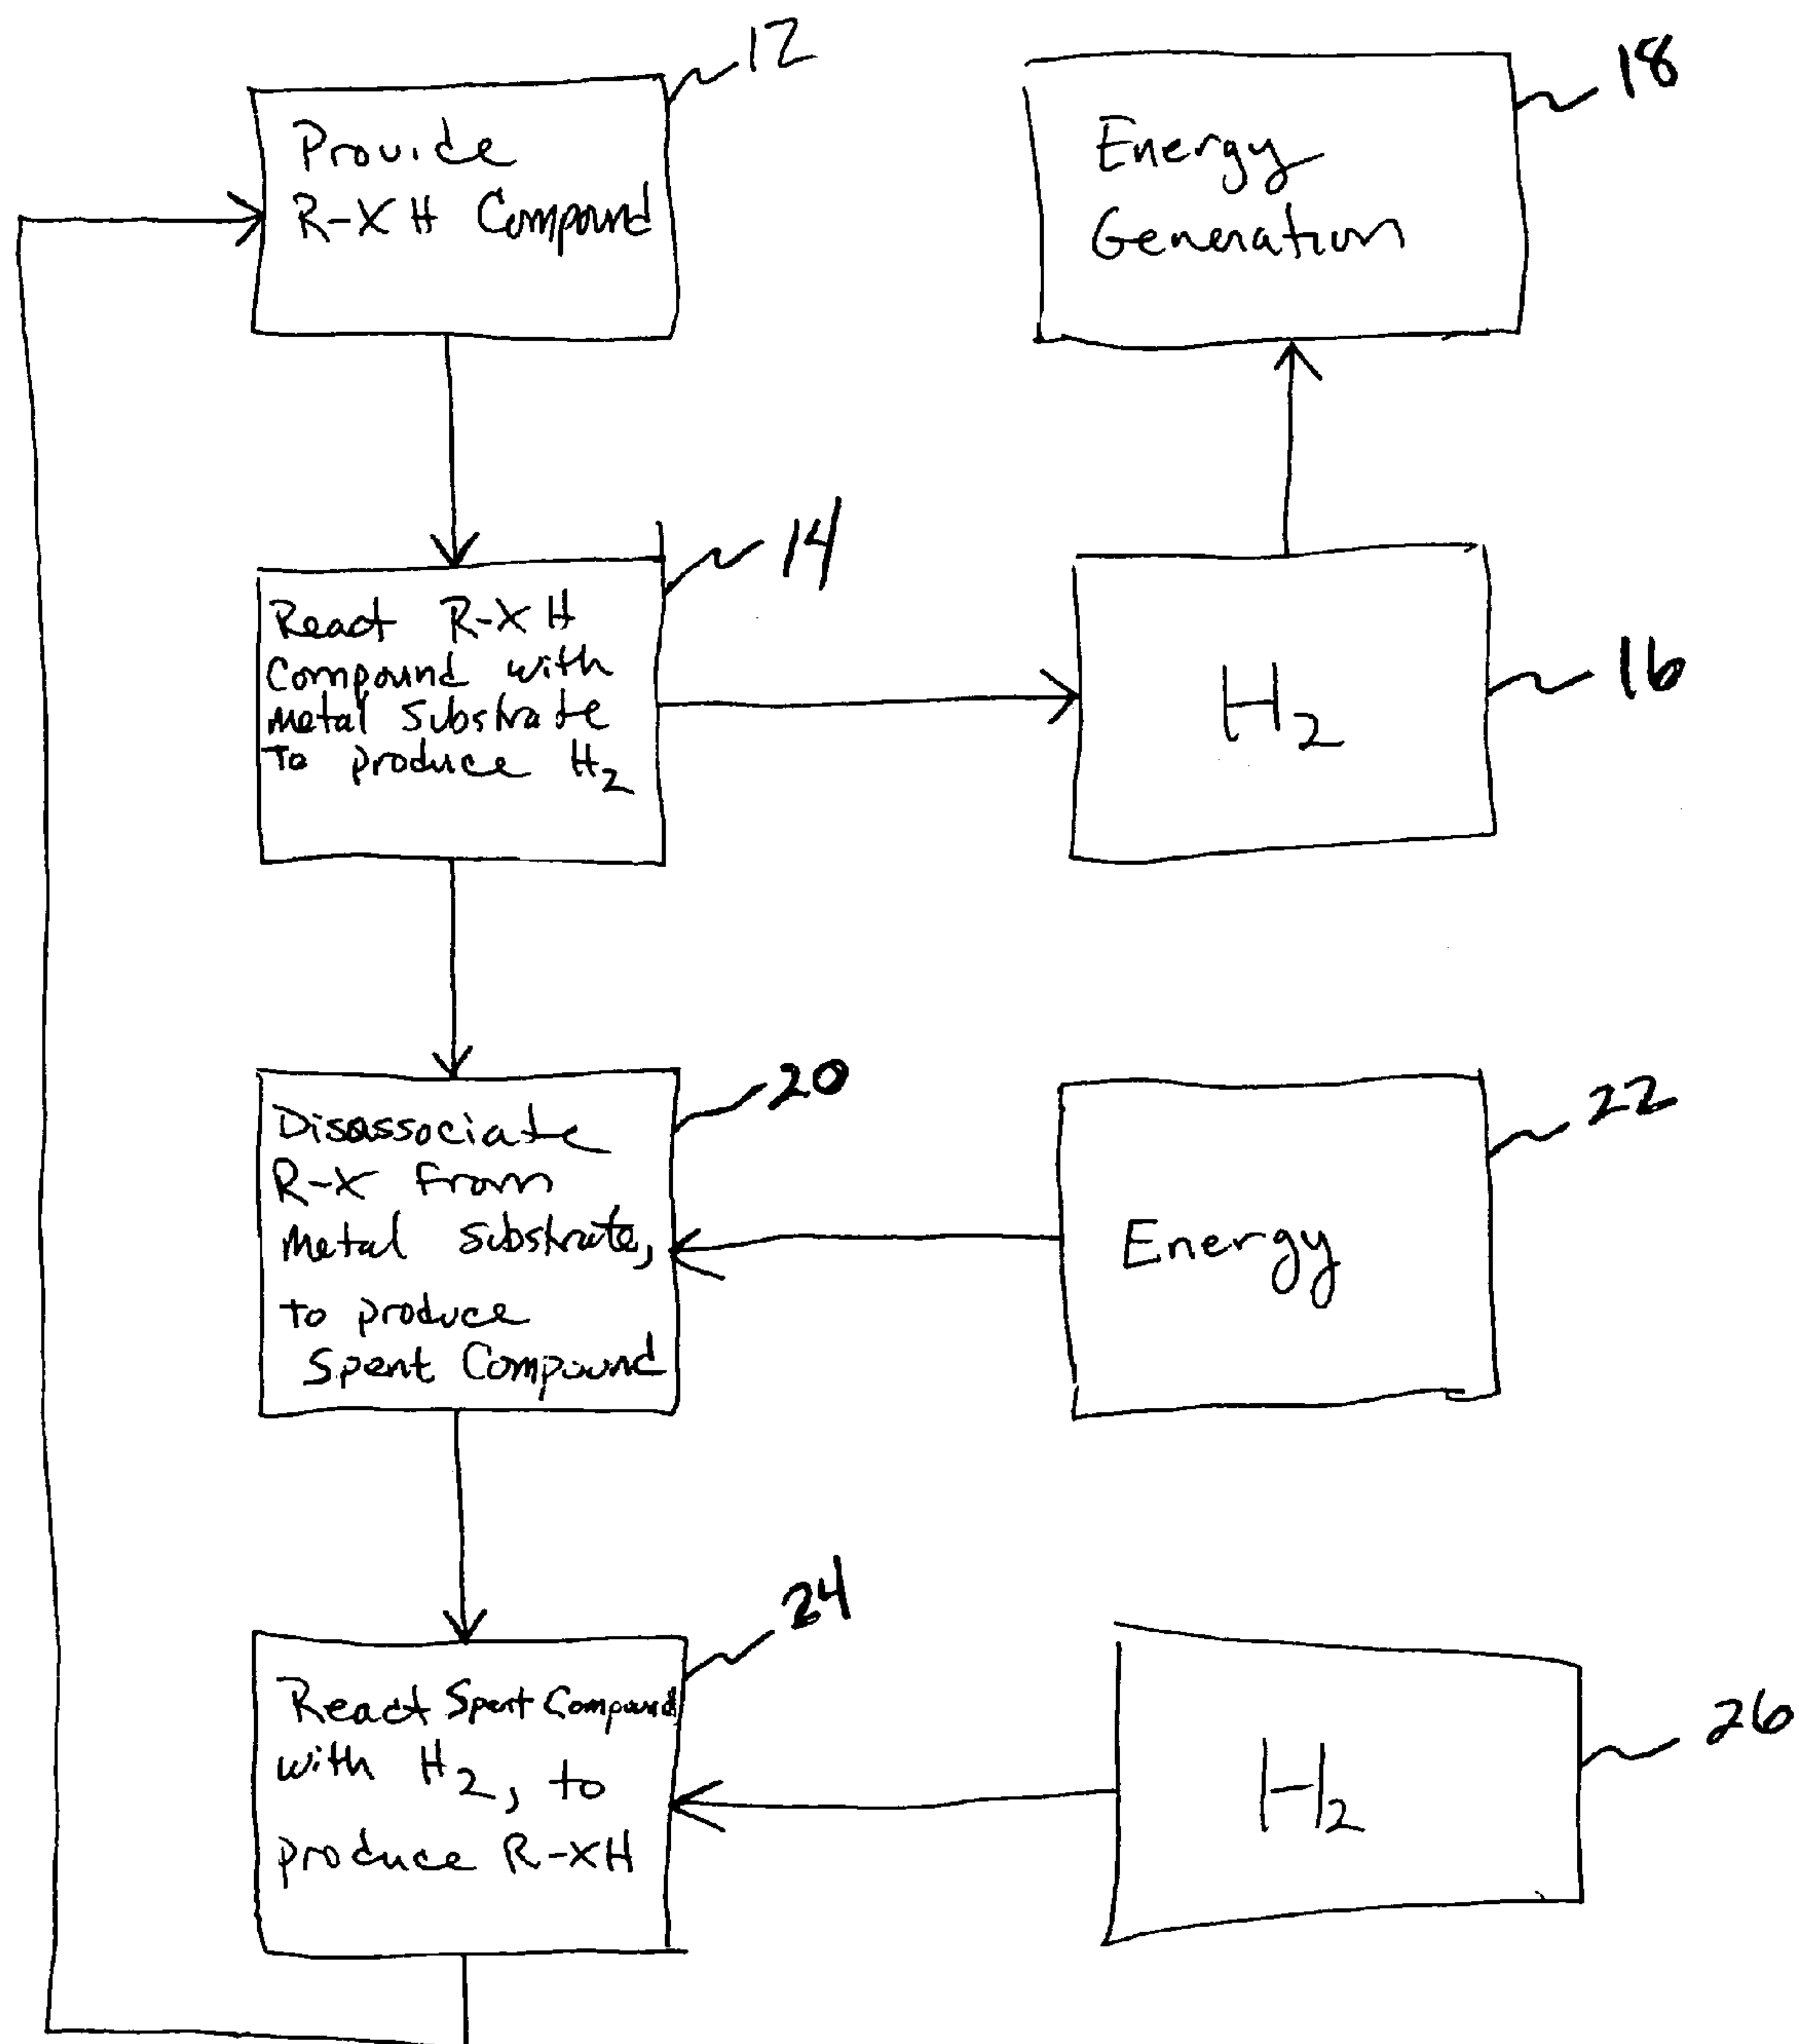 12
Provide
R-XH Compound
18
Energy
Generation
14
React R-XH
Compound with
Metal Substrate
To produce H2
16
H2
20
Disassociate
R-X From
Metal Substrate,
to produce
Spent Compound
22
Energy
24
React Spent Compound
with H2, to
produce R-XH
26
H2